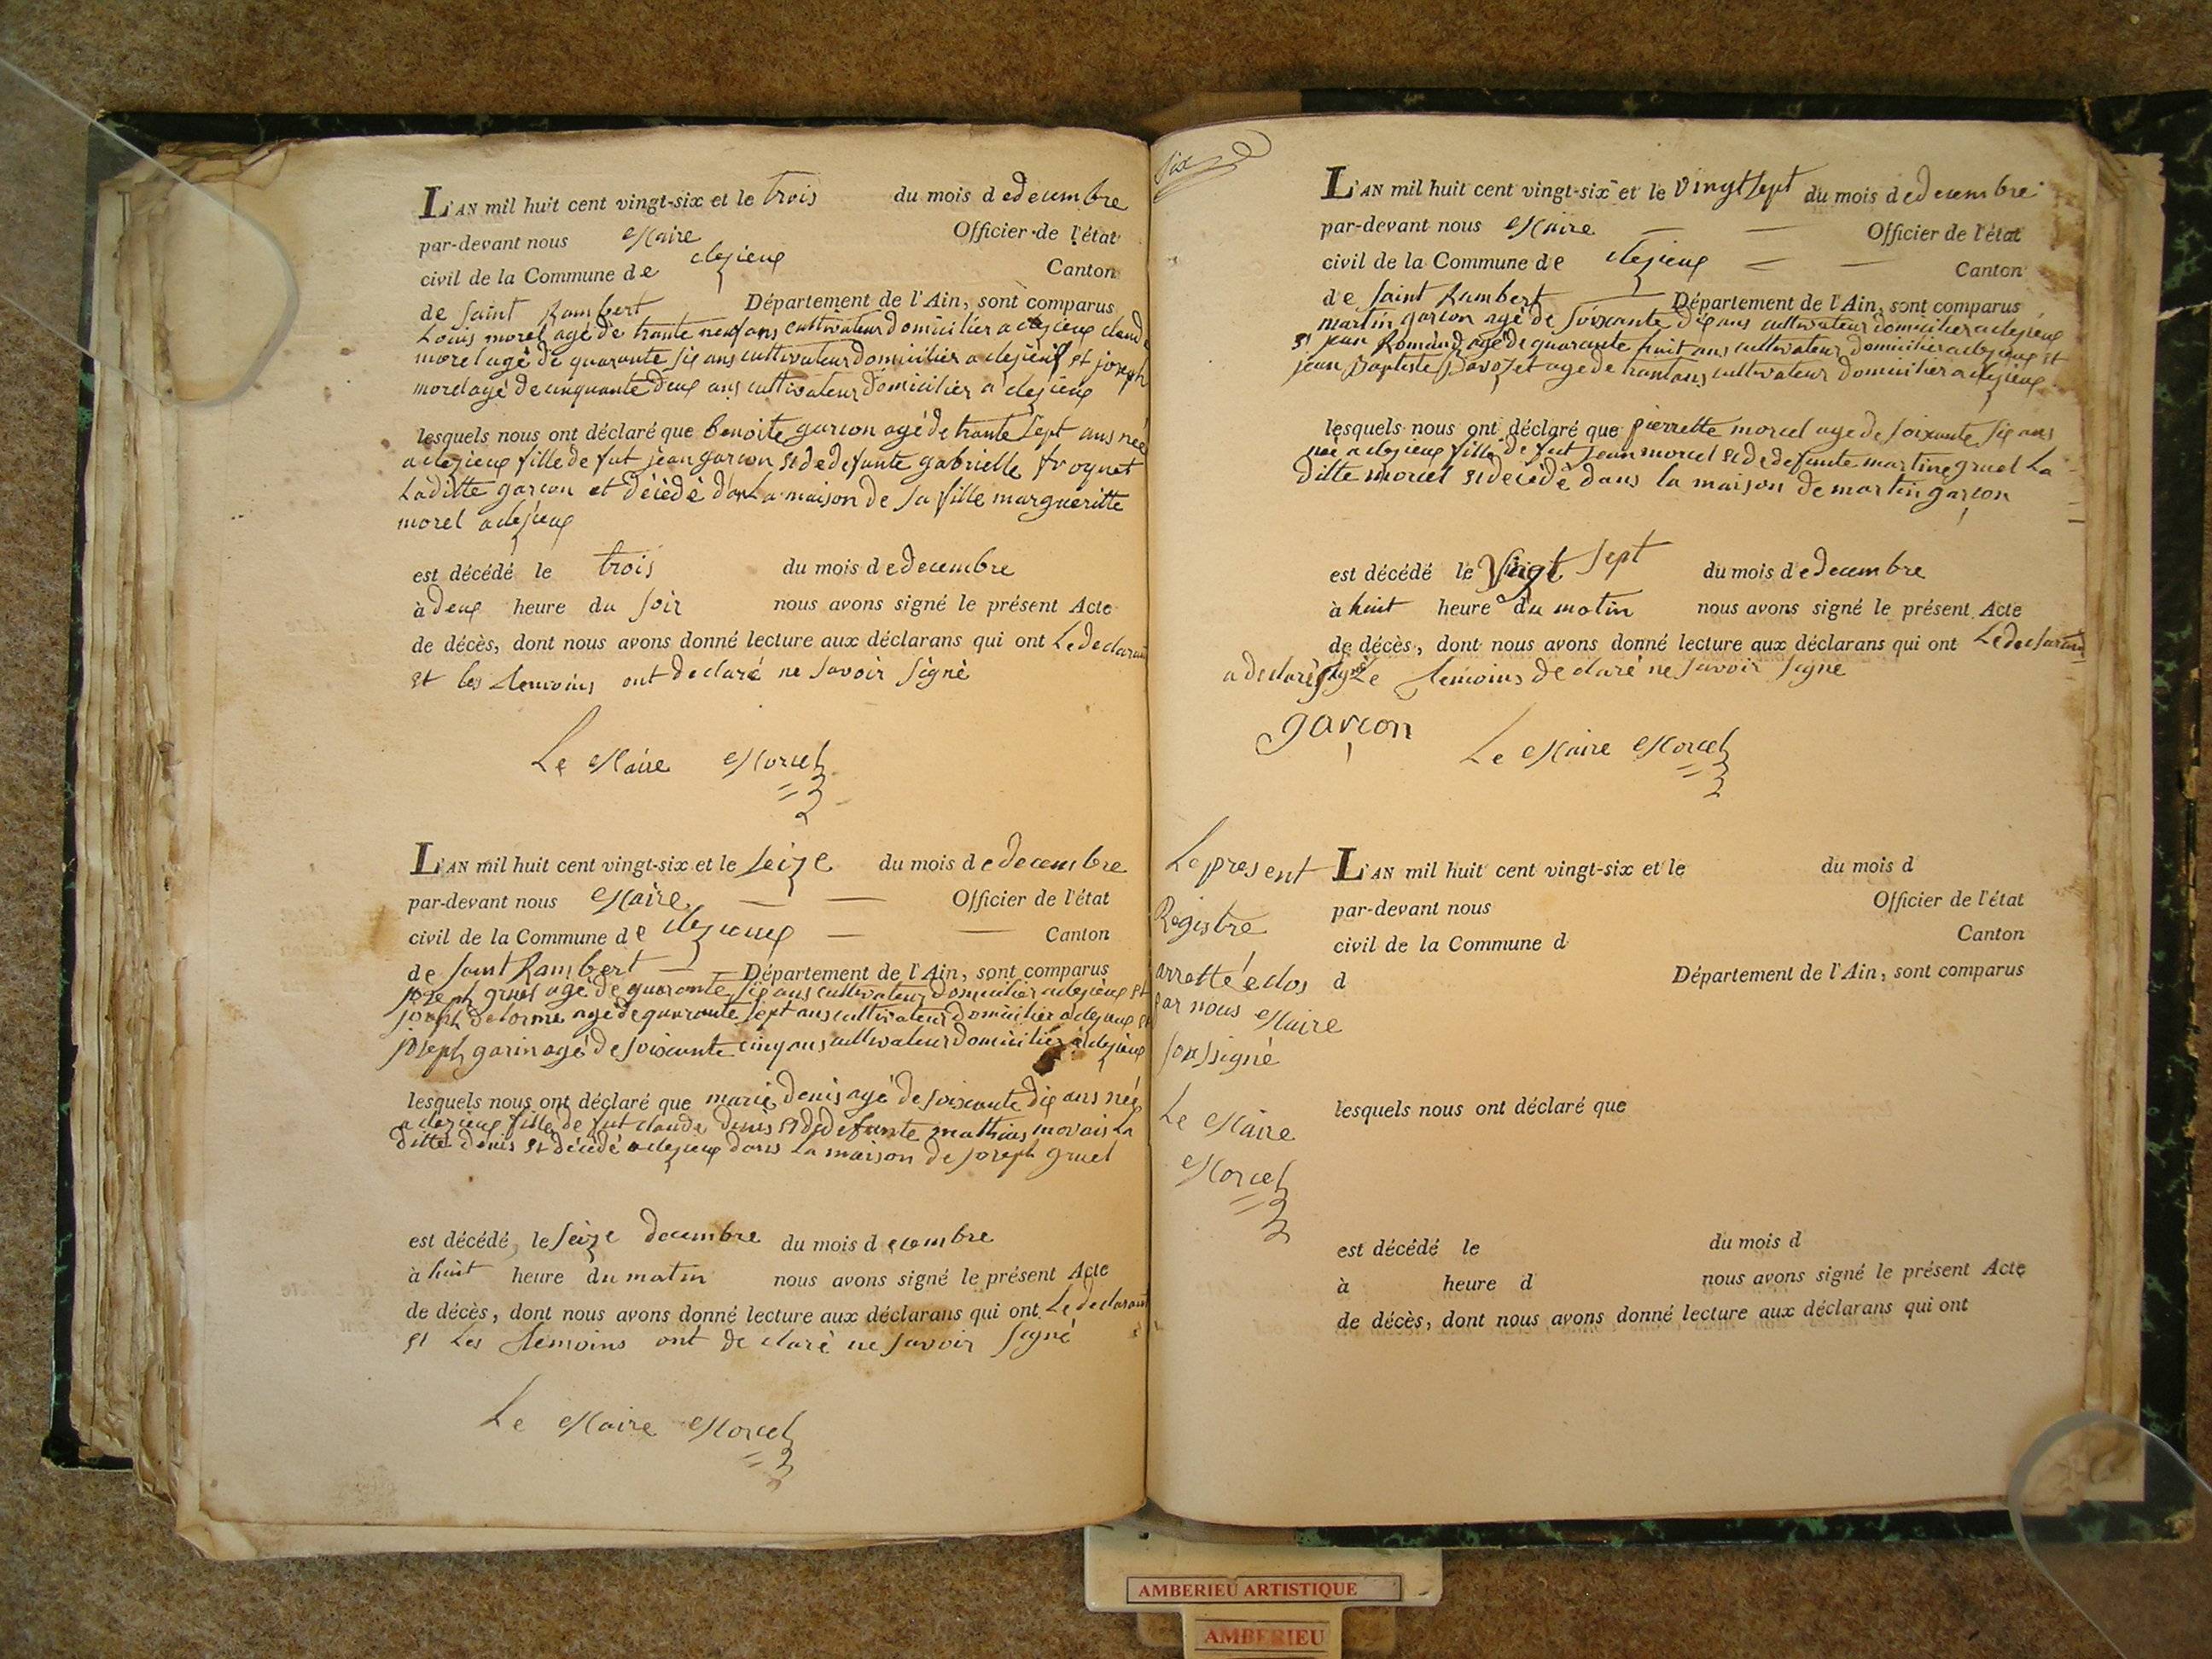 L'AN mil huit cent vingt-six et le trois du mois de decembre
par-devant nous Maire Officier de l'état
civil de la Commune de clezieux Canton
de saint Rambert Département de l'Ain, sont comparus
Louis morel agé de trante neuf ans cultivateur domicilier a clezieux claude
morel agé de quarante six ans cultivateur domicilier a clezieux et joseph
morel agé de cinquante deux ans cultivateur domicilier a clezieux
lesquels nous ont déclaré que Benoite garcon agé de trante sept ans née
a clezieux fille de fut jean garcon et de defunte gabrielle
Laditte garcon et décédé dans La maison de sa fille margueritte
morel a clezieux
est décédé le trois du mois de decembre
à deux heure du soir nous avons signé le présent Acte
de décès, dont nous avons donné lecture aux déclarans qui ont Le declarant
et les temoins ont declaré ne savoir signé
Le Maire Morcel
L'AN mil huit cent vingt-six et le seize du mois de decembre
par-devant nous Maire Officier de l'état
civil de la Commune de clezieux Canton
de saint Rambert Département de l'Ain, sont comparus
joseph gruel agé de quarante six ans cultivateur domicilier a clezieux et
joseph delorme agé de quarante sept ans cultivateur domicilier a clezieux et
joseph garin agé de soixante cinq ans cultivateur domicilier a clezieux
lesquels nous ont déclaré que marie denis agé de soixante dix ans née
a clezieux fille de fut claude denis et de defunte mathias La
ditte denis et décédé a clezieux dans La maison de joseph gruel
est décédé, le seize decembre du mois d ecembre
à huit heure du matin nous avons signé le présent Acte
de décès, dont nous avons donné lecture aux déclarans qui ont Le declarant
et Les temoins ont de claré ne savoir signé
Le Maire Morcel
six
L'AN mil huit cent vingt-six et le vingt sept du mois de decembre
par-devant nous Maire Officier de l'état
civil de la Commune de clezieux Canton
de saint Rambert Département de l'Ain, sont comparus
martin garcon agé de soixante dix ans cultivateur domicilier a clezieux
et jean Romand agé de quarante huit ans cultivateur domicilier a clezieux et
jean Baptiste agé de trant ans cultivateur domicilier a clezieux
lesquels nous ont déclaré que pierrette morcel agé de soixante six ans
née a clezieux fille de fut jean morcel et de defunte martine gruel La
ditte morcel et décédé dans la maison de martin garcon
est décédé le vingt sept du mois de decembre
à huit heure du matin nous avons signé le présent Acte
de décès, dont nous avons donné lecture aux déclarans qui ont Le declarant
a declaré signé Le temoins de claré ne savoir signe
garcon Le Maire Morcel
Le present
Registre
arretté e clos
par nous Maire
soussigné
Le Maire
Morcel
L'AN mil huit cent vingt-six et le du mois d
par-devant nous Officier de l'état
civil de la Commune d Canton
d Département de l'Ain, sont comparus
lesquels nous ont déclaré que
est décédé le du mois d
à heure d nous avons signé le présent Acte
de décès, dont nous avons donné lecture aux déclarans qui ont
AMBERIEU ARTISTIQUE
AMBERIEU